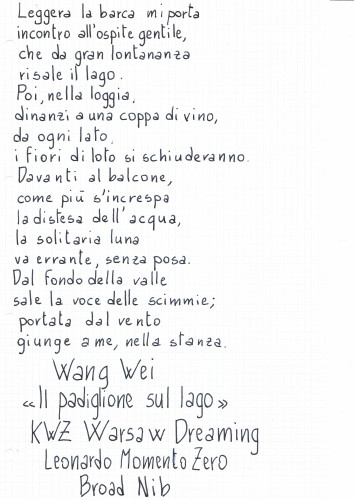 Leggera la barca mi porta
incontro all'ospite gentile,
che da gran lontananza
risale il lago.
Poi, nella loggia,
dinanzi a una coppa di vino,
da ogni lato,
i fiori di loto si schiuderanno.
Davanti al balcone,
come più s'increspa
la distesa dell'acqua,
la solitaria luna
va errante, senza posa.
Dal fondo della valle
sale la voce delle scimmie;
portata dal vento
giunge a me, nella stanza.
Wang Wei
«Il padiglione sul lago»
KWZ Warsaw Dreaming
Leonardo Momento Zero
Broad Nib